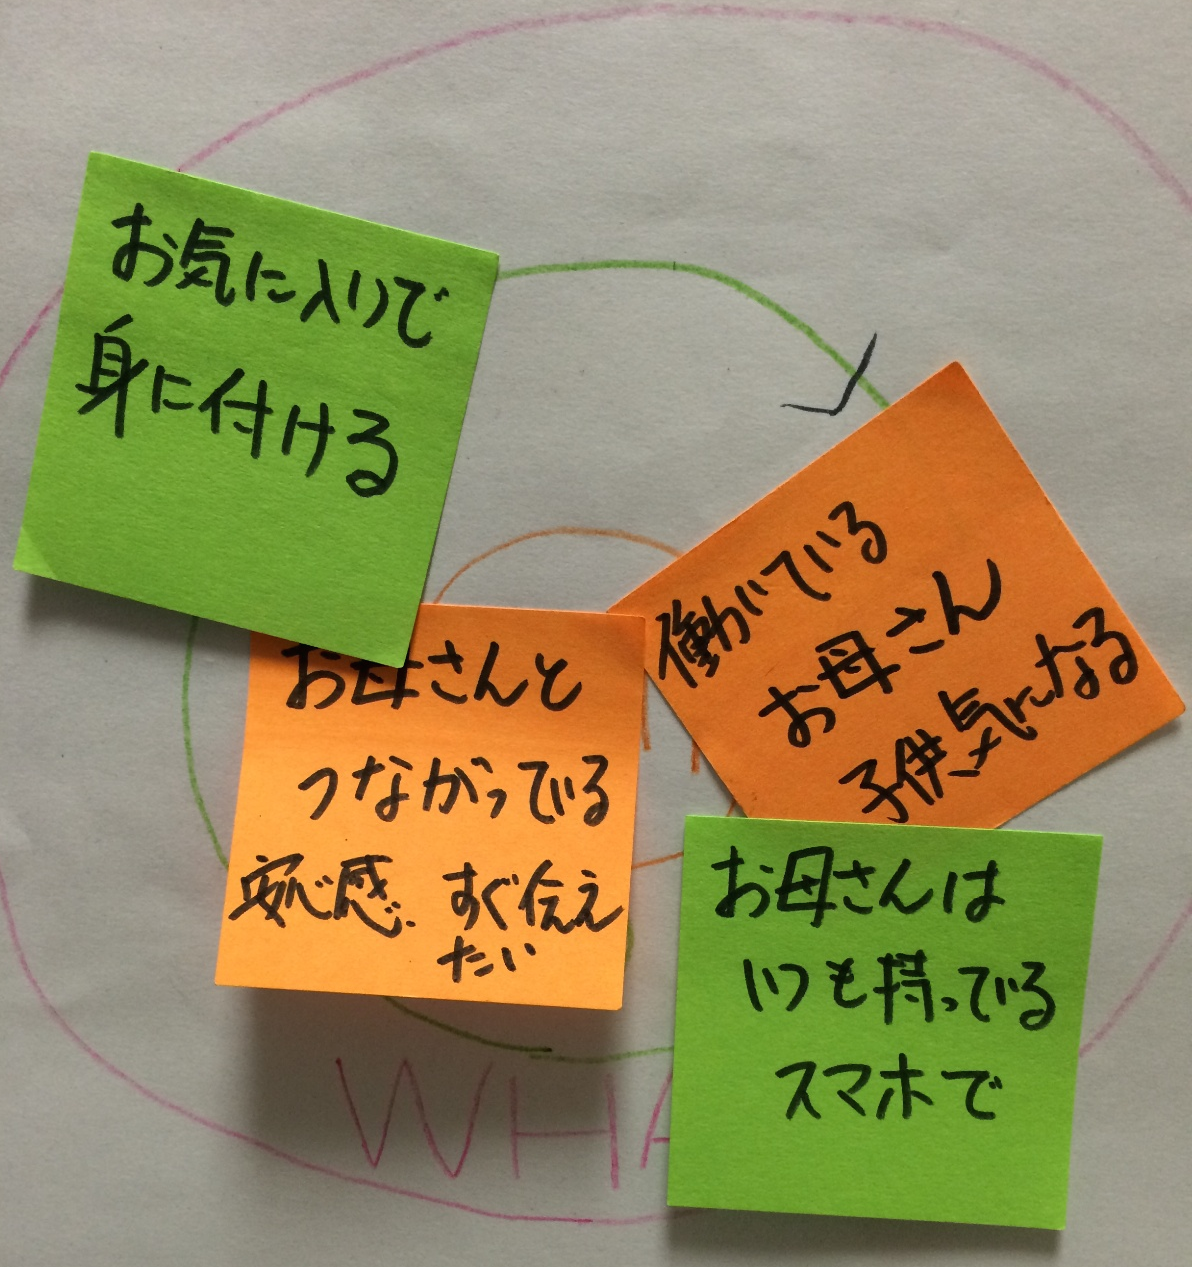 お気に入りで
身に付ける
働いている
お母さん
子供気になる
お母さんと
つながっている
安心感 すぐ伝え
たい
お母さんは
いつも持っている
スマホで
WHA